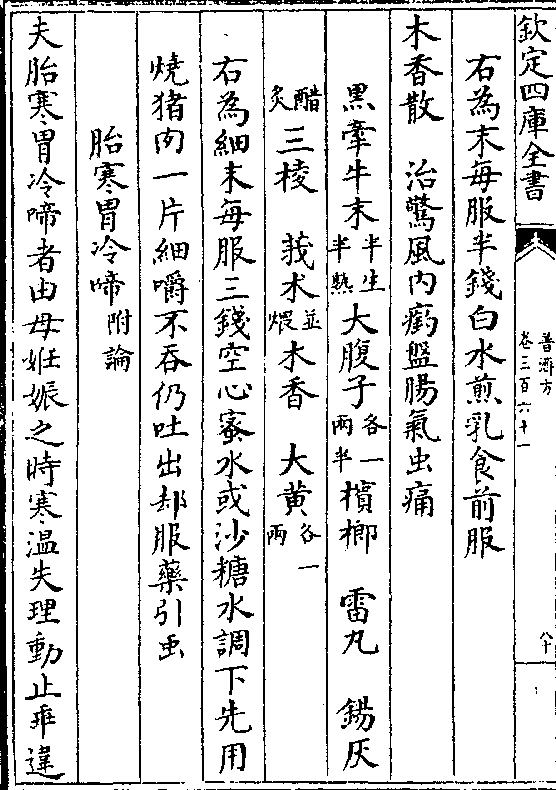 欽定四庫全書
普濟方
卷三百六十一
八十
右為末每服半錢白水煎乳食前服
木香散　治驚風內瘹盤腸氣虫痛
黒牽牛末半生半熟大腹子各一兩半檳榔　雷丸　錫灰
醋炙三棱　莪朮並煨木香　大黄各一兩
右為細末每服三錢空心蜜水或沙糖水調下先用
燒猪肉一片細嚼不吞仍吐出却服藥引虫
胎寒胃冷啼附論
夫胎寒胃冷啼者由母姙娠之時寒温失理動止乖違